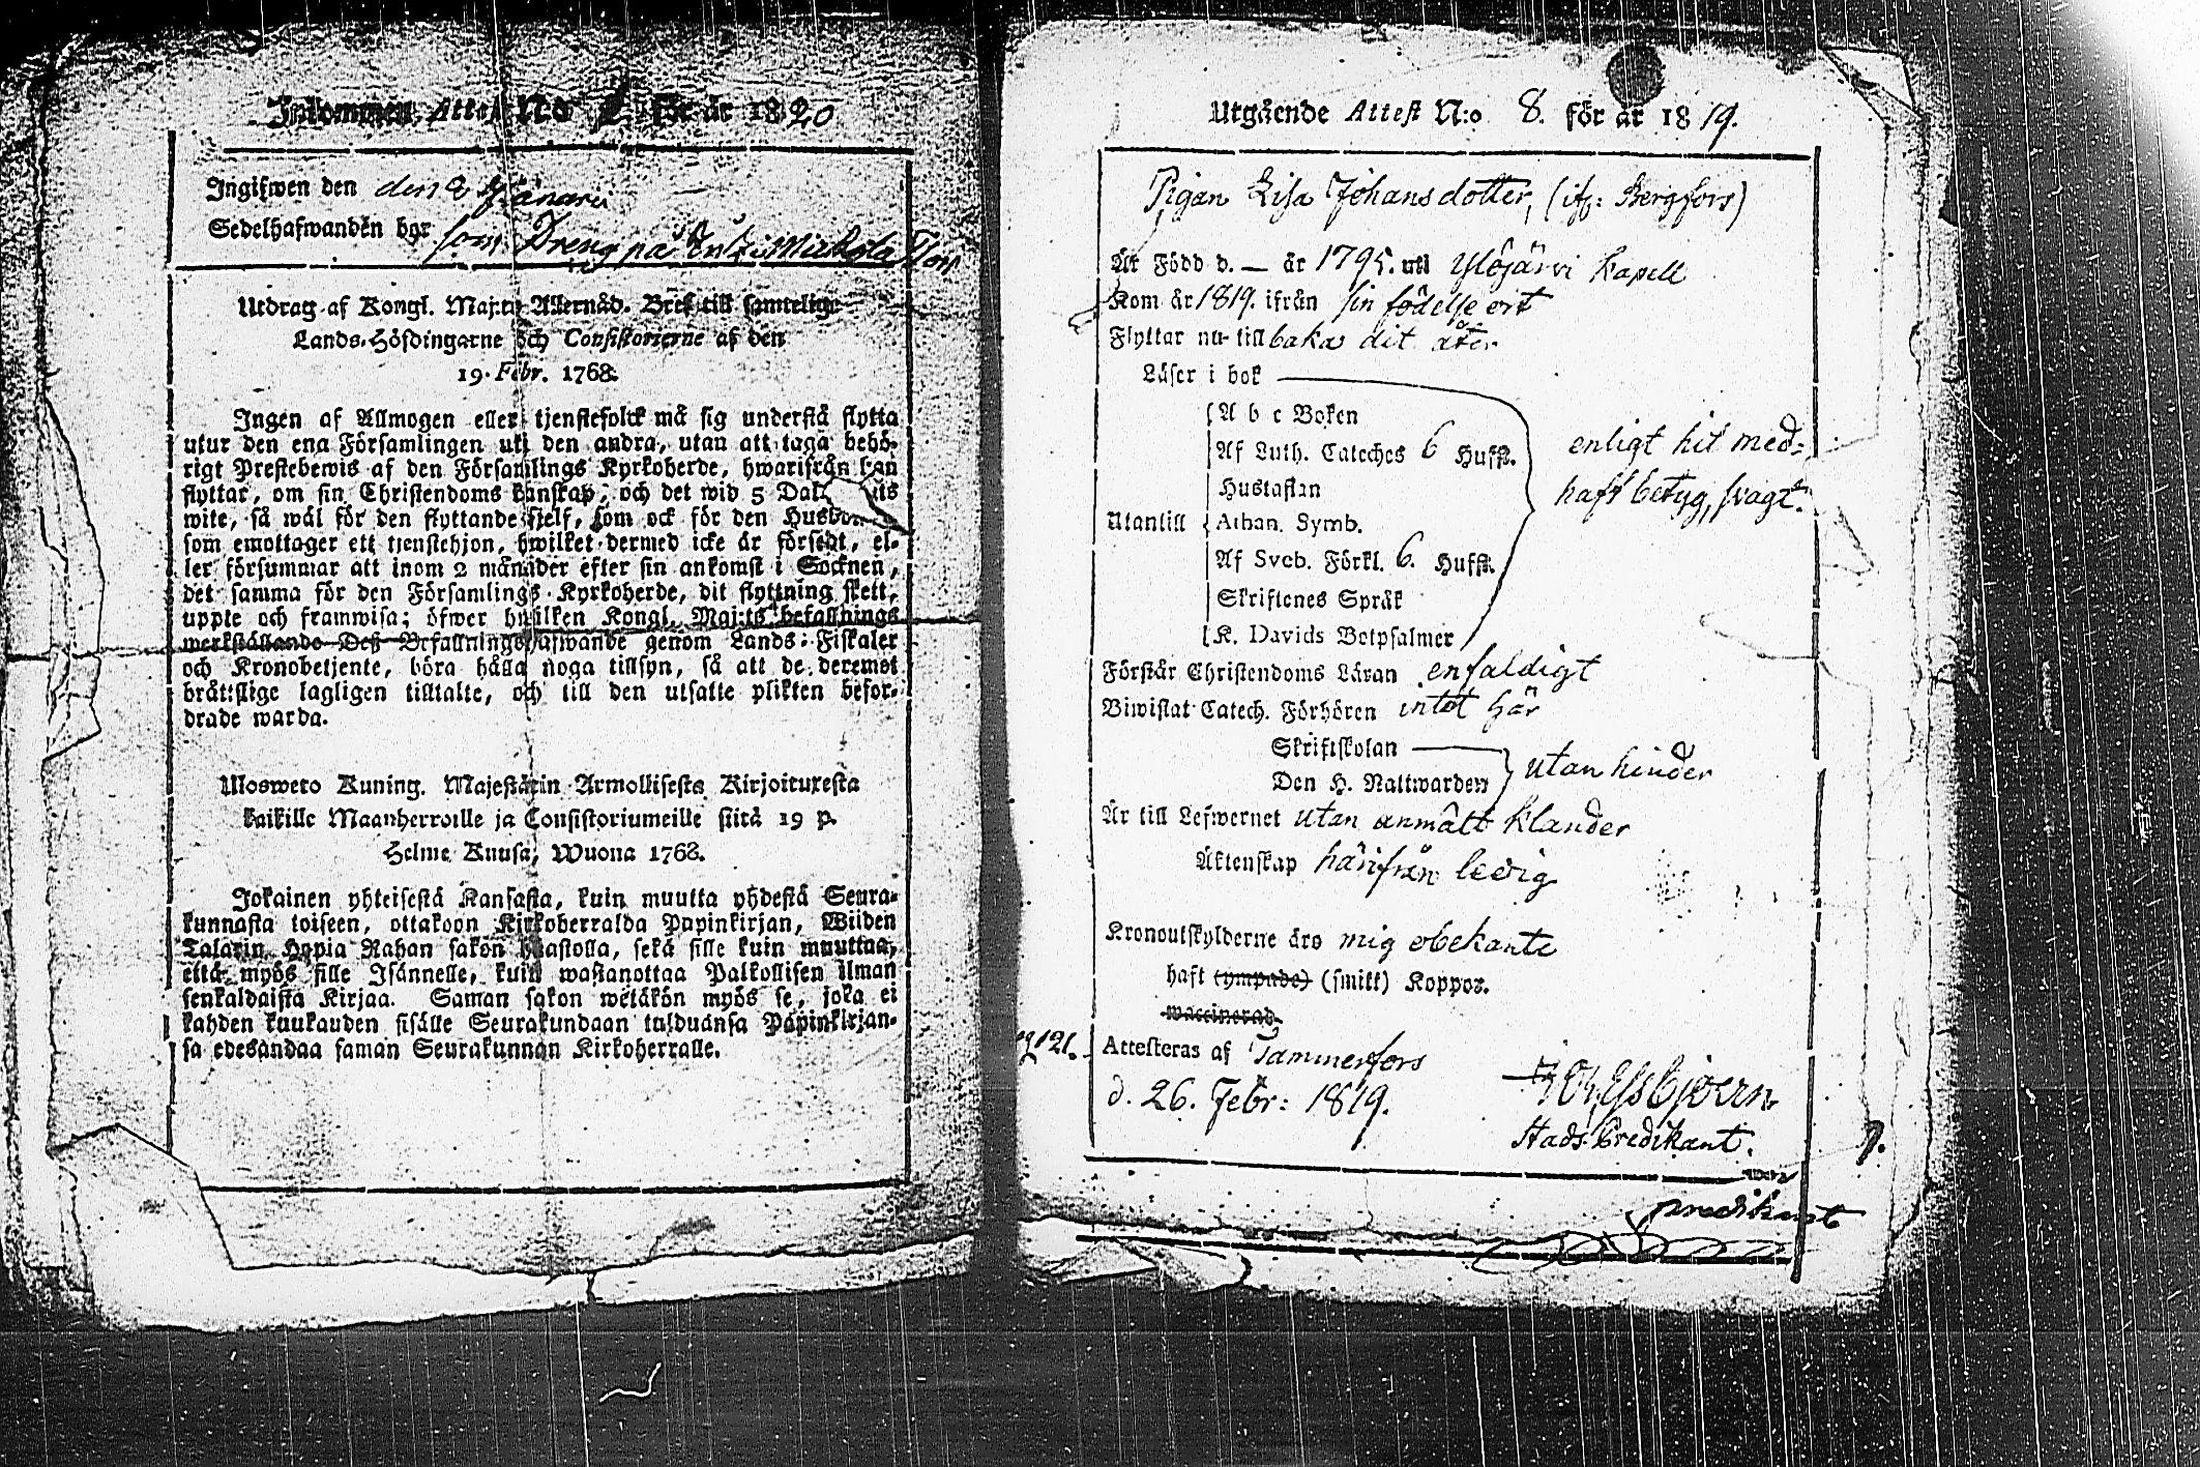 Inkommen Attest No för år 1820
Ingifwen den den 8 Januarii
Sedelhafwanden bor som Dreng på
Utdrag af Kongl. Maj:ts Allernåd. Bref till samtelige
Lands-Höfdingarne och Consistorierne af den
19. Febr. 1768.
Ingen af Allmogen eller tjenstefolck må sig understå flytta
utur den ena Församlingen uti den andra, utan att taga behö-
rigt Prestebewis af den Församlings Kyrkoherde, hwarifrån han
flyttar, om sin Christendoms kunskap, och det wid 5 Dal
wite, så wäl för den flyttande sjelf, som ock för den Husbon
som emottager ett tjenstehjon, hwilket dermed icke är försedt, el-
ler försummar att inom 2 månader efter sin ankomst i Socknen,
det samma för den Församlings Kyrkoherde, dit flyttning skett,
uppte och framwisa; öfwer hwilken Kongl. Maj:ts befallnings
werkställande Deß Befallningshafwande genom Lands-Fiskaler
och Kronobetjente, böra hålla noga tillsyn, så att de deremot
bråttslige lagligen tilltalte, och till den utsatte plikten befor-
drade warda.
Ulosweto Kuning. Majestätin Armollisesta Kirjoituxesta
kaikille Maanherroille ja Consistoriumeille siitä 19 p.
Helme Kuusa, Wuona 1768.
Jokainen yhteisestä Kansasta, kuin muutta yhdestä Seura-
kunnasta toiseen, ottakoon Kirkoherralda Papinkirjan, Wiiden
Talarin Hopia Rahan sakon haastolla, sekä sille kuin muuttaa,
että myös sille Isännelle, kuin wastanottaa Palkollisen ilman
senkaldaista Kirjaa. Saman sakon wetäkön myös se, joka ei
kahden kuukauden sisälle Seurakundaan tulduansa Papinkirjan-
sa edesandaa saman Seurakunnan Kirkoherralle.
Utgående Attest N:o 8. för år 1819.
Pigan Lisa Johansdotter, (itf: Bergfors)
Är Född d. — år 1795. uti Ylöjärvi Kapell
Kom år 1819. ifrån sin födelse ort
Flyttar nu till baka dit åter.
Läser i bok
A b c Boken
Af Luth. Cateches 6 Hufst.
enligt hit med-
Hustaflan
haft betyg, svagt.
Utantill Athan. Symb.
Af Sveb. Förkl. 6. Hufst.
Skriftenes Språk
K. Davids Botpsalmer
Förstår Christendoms Läran enfaldigt
Biwistat Catech. Förhören intet här
Skriftskolan
utan hinder
Den H. Nattwarden
Är till Lefwernet utan anmält klander
Äktenskap härifrån ledig
Kronoutskylderne äro mig obekante
haft (ympade) (smitt) Koppor.
waccinerad
pag 121.
Attesteras af Tammerfors
d. 26. Febr: 1819.
Stads Predikant.
predikant